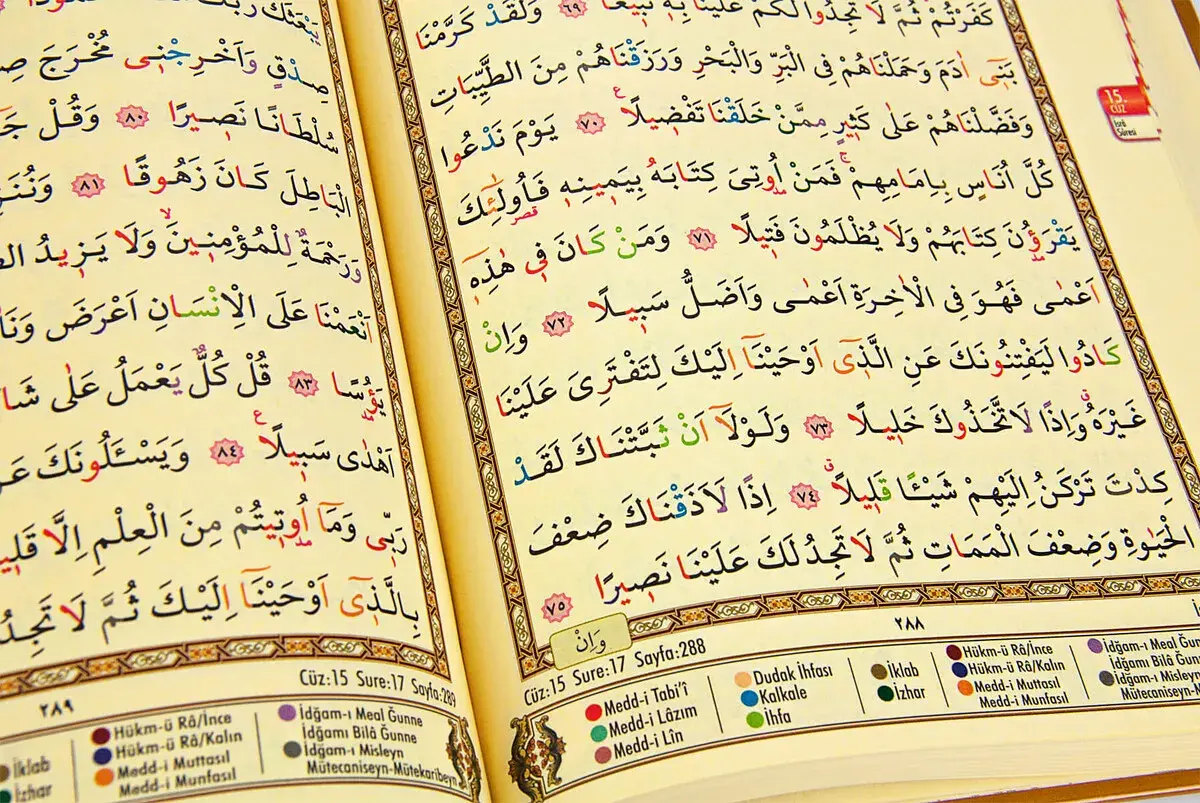 كَفَرْتُمْ ثُمَّ لَا تَجِدُوا لَكُمْ عَلَيْنَا بِهِ تَبِيعًا ﴿٦٩﴾ وَلَقَدْ كَرَّمْنَا
بَنِٓى اٰدَمَ وَحَمَلْنَاهُمْ فِى الْبَرِّ وَالْبَحْرِ وَرَزَقْنَاهُمْ مِنَ الطَّيِّبَاتِ
وَفَضَّلْنَاهُمْ عَلٰى كَثِيرٍ مِمَّنْ خَلَقْنَا تَفْضِيلًا ﴿٧٠﴾ يَوْمَ نَدْعُوا
كُلَّ اُنَاسٍ بِاِمَامِهِمْ فَمَنْ اُوتِىَ كِتَابَهُ بِيَمِينِهِ فَاُولٰٓئِكَ
يَقْرَؤُنَ كِتَابَهُمْ وَلَا يُظْلَمُونَ فَتِيلًا ﴿٧١﴾ وَمَنْ كَانَ فِى هٰذِهِ
اَعْمٰى فَهُوَ فِى الْاٰخِرَةِ اَعْمٰى وَاَضَلُّ سَبِيلًا ﴿٧٢﴾ وَاِنْ
كَادُوا لَيَفْتِنُونَكَ عَنِ الَّذِٓى اَوْحَيْنَٓا اِلَيْكَ لِتَفْتَرِىَ عَلَيْنَا
غَيْرَهُ وَاِذًا لَاتَّخَذُوكَ خَلِيلًا ﴿٧٣﴾ وَلَوْلَٓا اَنْ ثَبَّتْنَاكَ لَقَدْ
كِدْتَ تَرْكَنُ اِلَيْهِمْ شَيْئًا قَلِيلًا ﴿٧٤﴾ اِذًا لَاَذَقْنَاكَ ضِعْفَ
الْحَيٰوةِ وَضِعْفَ الْمَمَاتِ ثُمَّ لَا تَجِدُ لَكَ عَلَيْنَا نَصِيرًا ﴿٧٥﴾
وَاِنْ
٢٨٨
Cüz:15 Sure:17 Sayfa:288
Medd-i Tabi'î
Medd-i Lâzım
Medd-i Lîn
Dudak İhfası
Kalkale
İhfa
İklab
İzhar
Hükm-ü Râ/İnce
Hükm-ü Râ/Kalın
Medd-i Muttasıl
Medd-i Munfasıl
İdğam-ı Meal
İdğamı Bilâ
İdğam-ı Misleyn
15.
CÜZ
İsrâ
Sûresi
يَبْعَثَكَ رَبُّكَ
صِدْقٍ وَاَخْرِجْنِى مُخْرَجَ
سُلْطَانًا نَصِيرًا ﴿٨٠﴾ وَقُلْ
الْبَاطِلَ كَانَ زَهُوقًا ﴿٨١﴾
وَرَحْمَةٌ لِلْمُؤْمِنِينَ وَلَا يَزِيدُ
اَنْعَمْنَا عَلَى الْاِنْسَانِ اَعْرَضَ
يَؤُسًا ﴿٨٣﴾ قُلْ كُلٌّ يَعْمَلُ عَلٰى
اَهْدٰى سَبِيلًا ﴿٨٤﴾ وَيَسْـَٔلُونَكَ
رَبِّى وَمَٓا اُوتِيتُمْ مِنَ الْعِلْمِ اِلَّا
بِالَّذِٓى اَوْحَيْنَٓا اِلَيْكَ ثُمَّ لَا
Cüz:15 Sure:17 Sayfa:289
٢٨٩
İklab
İzhar
Hükm-ü Râ/İnce
Hükm-ü Râ/Kalın
Medd-i Muttasıl
Medd-i Munfasıl
İdğam-ı Meal Ğunne
İdğamı Bilâ Ğunne
İdğam-ı Misleyn
Mütecaniseyn-Mütekaribeyn